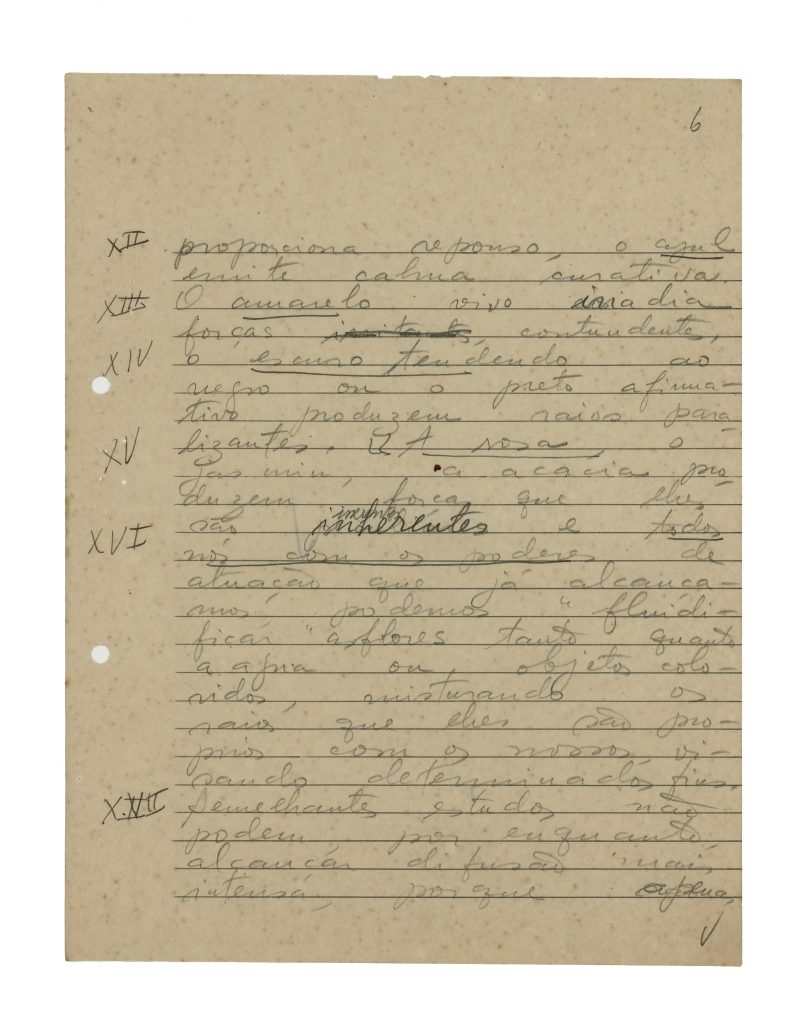 6
XII proporciona repouso, o azul
emite calma curativa.
XIII O amarelo vivo irradia
forças contundente,
XIV o escuro tendendo ao
negro ou o preto afirma-
tivo produzem raios para-
XV lizantes. A rosa, o
jasmim, a acacia pro-
duzem força que lhes
são inherentes e todos
XVI nós com os poderes de
atuação que já alcança-
mos, podemos "fluidi-
ficar" as flores tanto quanto
a agua ou objetos colo-
ridos, misturando os
raios que lhes são pro-
prios com os nossos, vi-
sando determinados fins.
XVII Semelhantes estudos não
podem por enquanto,
alcançar difusão mais
intensa, porque apenas